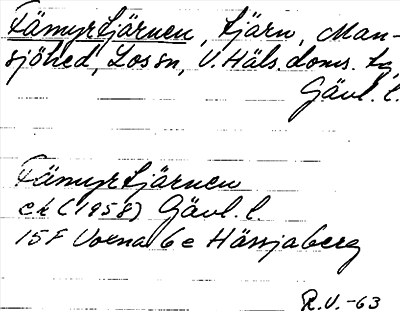 Fämyrtjärnen, tjärn, Man-
sjöhed, Los sn, V. Häls. doms. tg,
Gävl. l.
Fämyrtjärnen
ek (1958) Gävl. l.
15F Voxna 6e Hässjaberg
R.V.-63